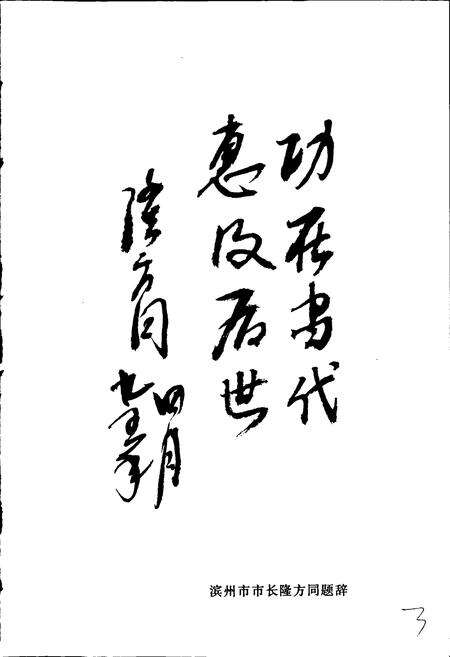 功在当代
惠及后世
隆方同
九五年
四月
滨州市市长隆方同题辞
3